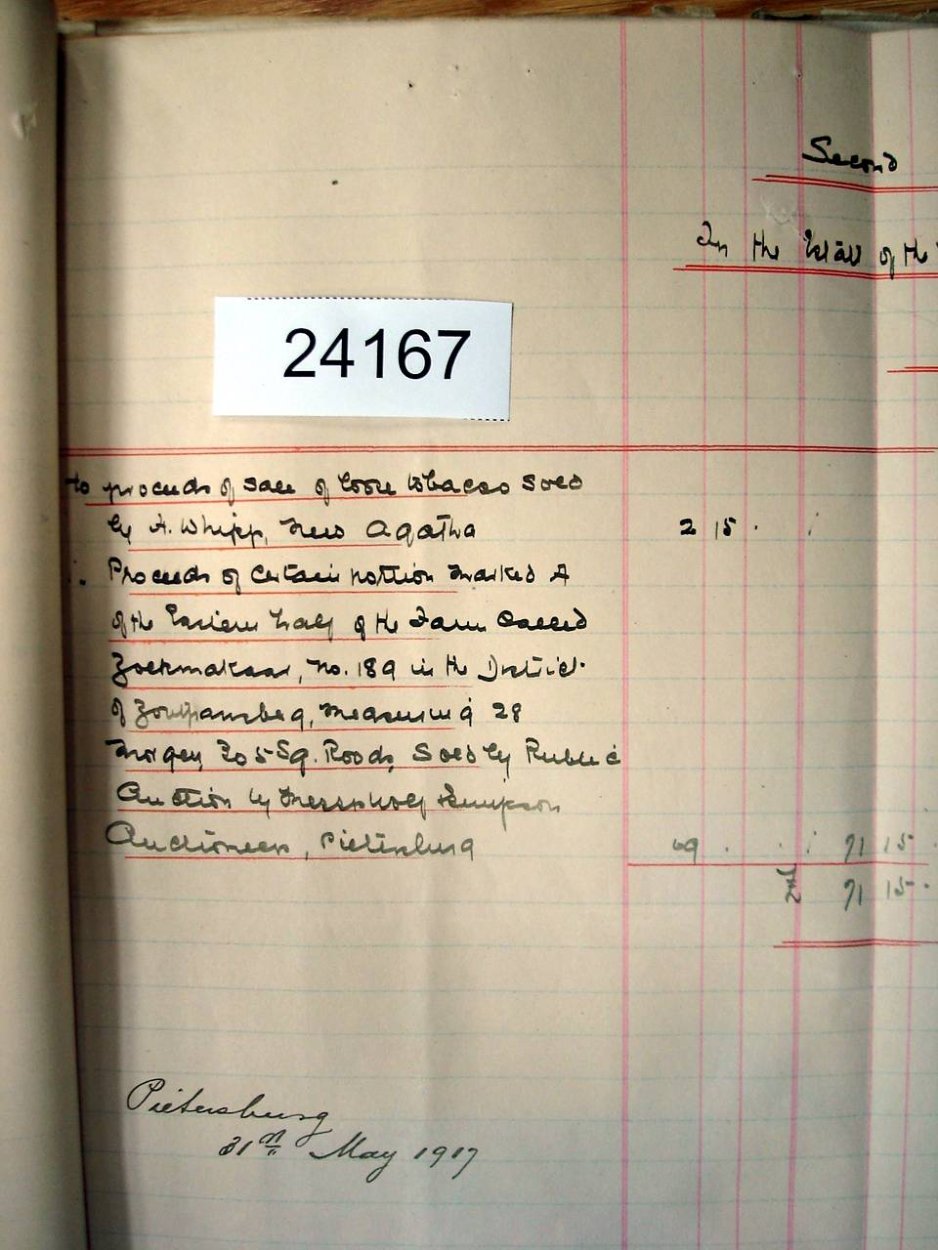 Second
In the Estate of the
24167
To proceeds of sale of loose tobacco sold
by A. Whipp, New Agatha 2 15 .
" Proceeds of certain portion marked A
of the Eastern half of the Farm called
Zoekmakaar, No. 189 in the District
of Zoutpansberg, measuring 28
Morgen 205 Sq. Roods, sold by Public
Auction by Messrs Wolf Simpson
Auctioneers, Pietersburg 69 . . 71 15 .
71 15 .
Pietersburg
31st May 1917